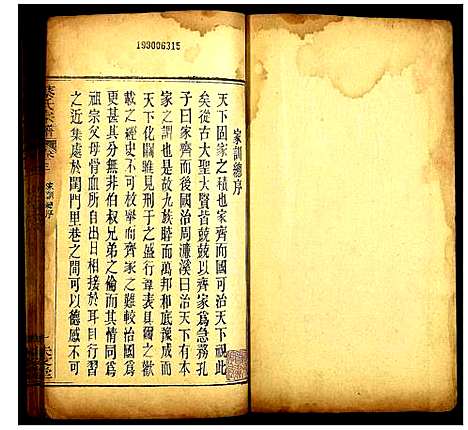 193006315
家訓總序
天下國家之積也家齊而國可治天下視此
矣從古大聖大賢皆兢兢以齊家為急務孔
子曰家齊而後國治周濂溪曰治天下有本
家之謂也是故九族睦而萬邦和底豫成而
天下化關雎見刑于之盛行葦表具爾之歡
載之經史不可枚舉而齊家之難較治國為
更甚其分無非伯叔兄弟之倫而其情同為
祖宗父母骨血所自出日相接於耳目行習
之近集處於閨門里巷之間可以德感不可
氏宗譜
家訓總序